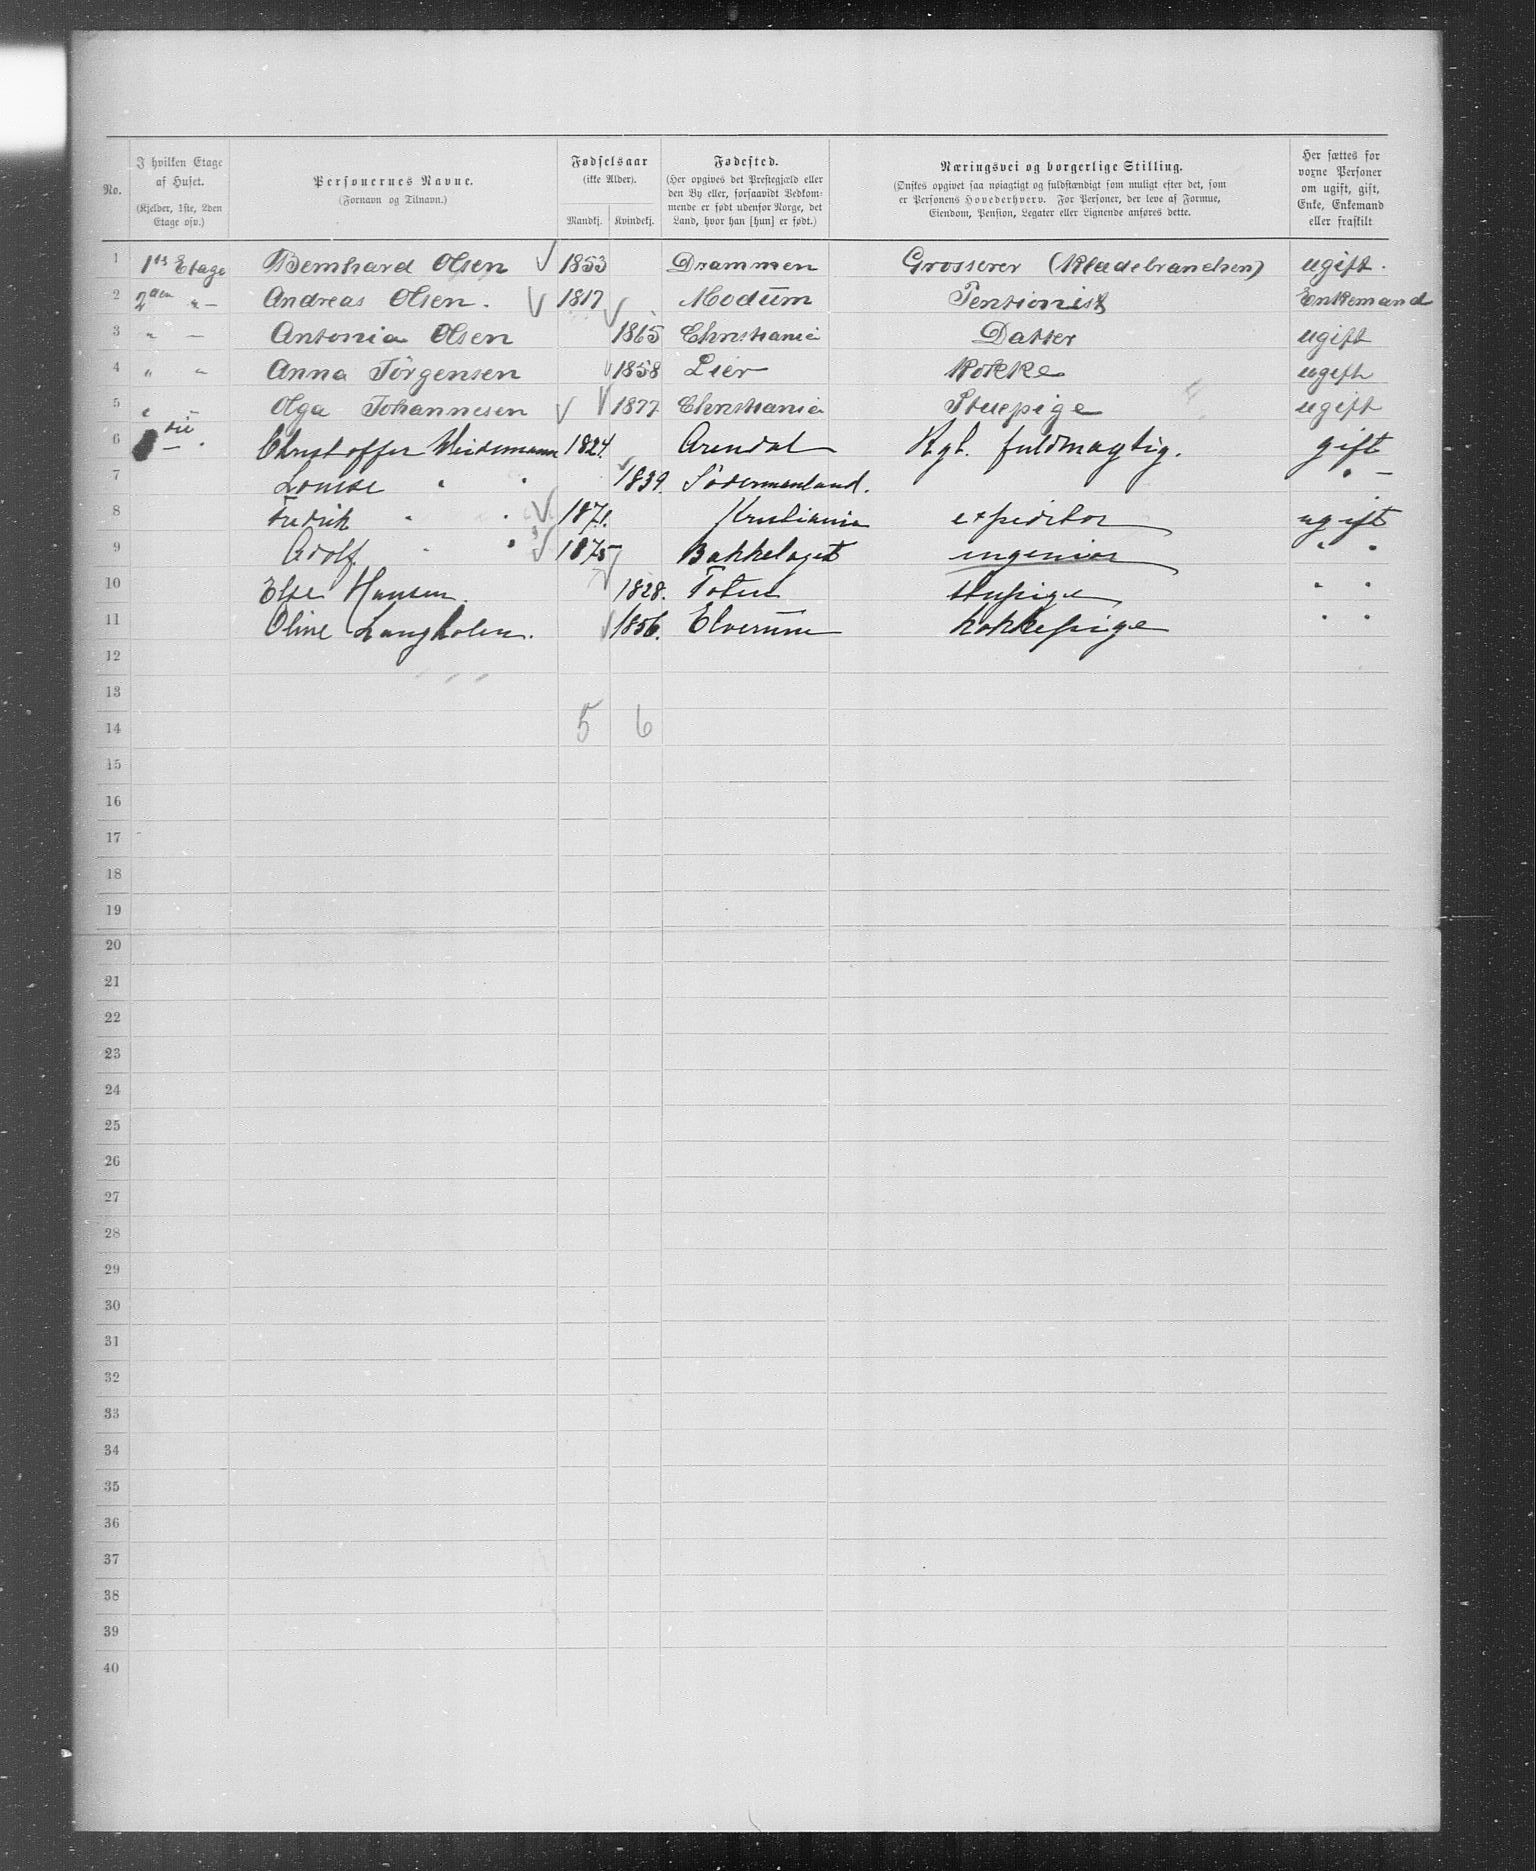 No. | I hvilken Etage af Huset. (Kjelder, 1ste, 2den Etage osv.) | Personernes Navne. (Fornavn og Tilnavn.) | Fødselsaar (ikke Alder). Mandkj. | Kvindekj. | Fødested. (Her opgives det Prestegjæld eller den By eller, forsaavidt Vedkommende er født udenfor Norge, det Land, hvor han [hun] er født.) | Næringsvei og borgerlige Stilling. (Ønskes opgivet saa nøiagtigt og fuldstændigt som muligt efter det, som er Personens Hovederhverv. For Personer, der leve af Formue, Eiendom, Pension, Legater eller Lignende anføres dette. | Her sættes for voxne Personer om ugift, gift, Enke, Enkemand eller fraskilt
1 1ste Etage Bernhard Olsen 1853 Drammen Grosserer (Klædebranchen) ugift.
2 2den " — Andreas Olsen. 1817 Modum Pentionist Enkemand
3 " — Antonia Olsen 1865 Christiania Datter ugift
4 " " Anna Jörgensen 1858 Lier Kokke ugift
5 " — Olga Johannesen 1877 Christiania Stuepige ugift
6 — " Christoffer Weidemann 1824. Arendal Kgl. fuldmagtig. gift
7 Louise " " 1839. Södermanland. " —
8 Fredrik " " 1871. Kristiania expeditor ugift
9 Adolf. " " 1875 Bakkelaget ingeniør " "
10 Else Hansen. 1828. Toten stupige " "
11 Oline Langholen. 1856. Elverum kokkepige " "
12
13
14 5 6
15
16
17
18
19
20
21
22
23
24
25
26
27
28
29
30
31
32
33
34
35
36
37
38
39
40